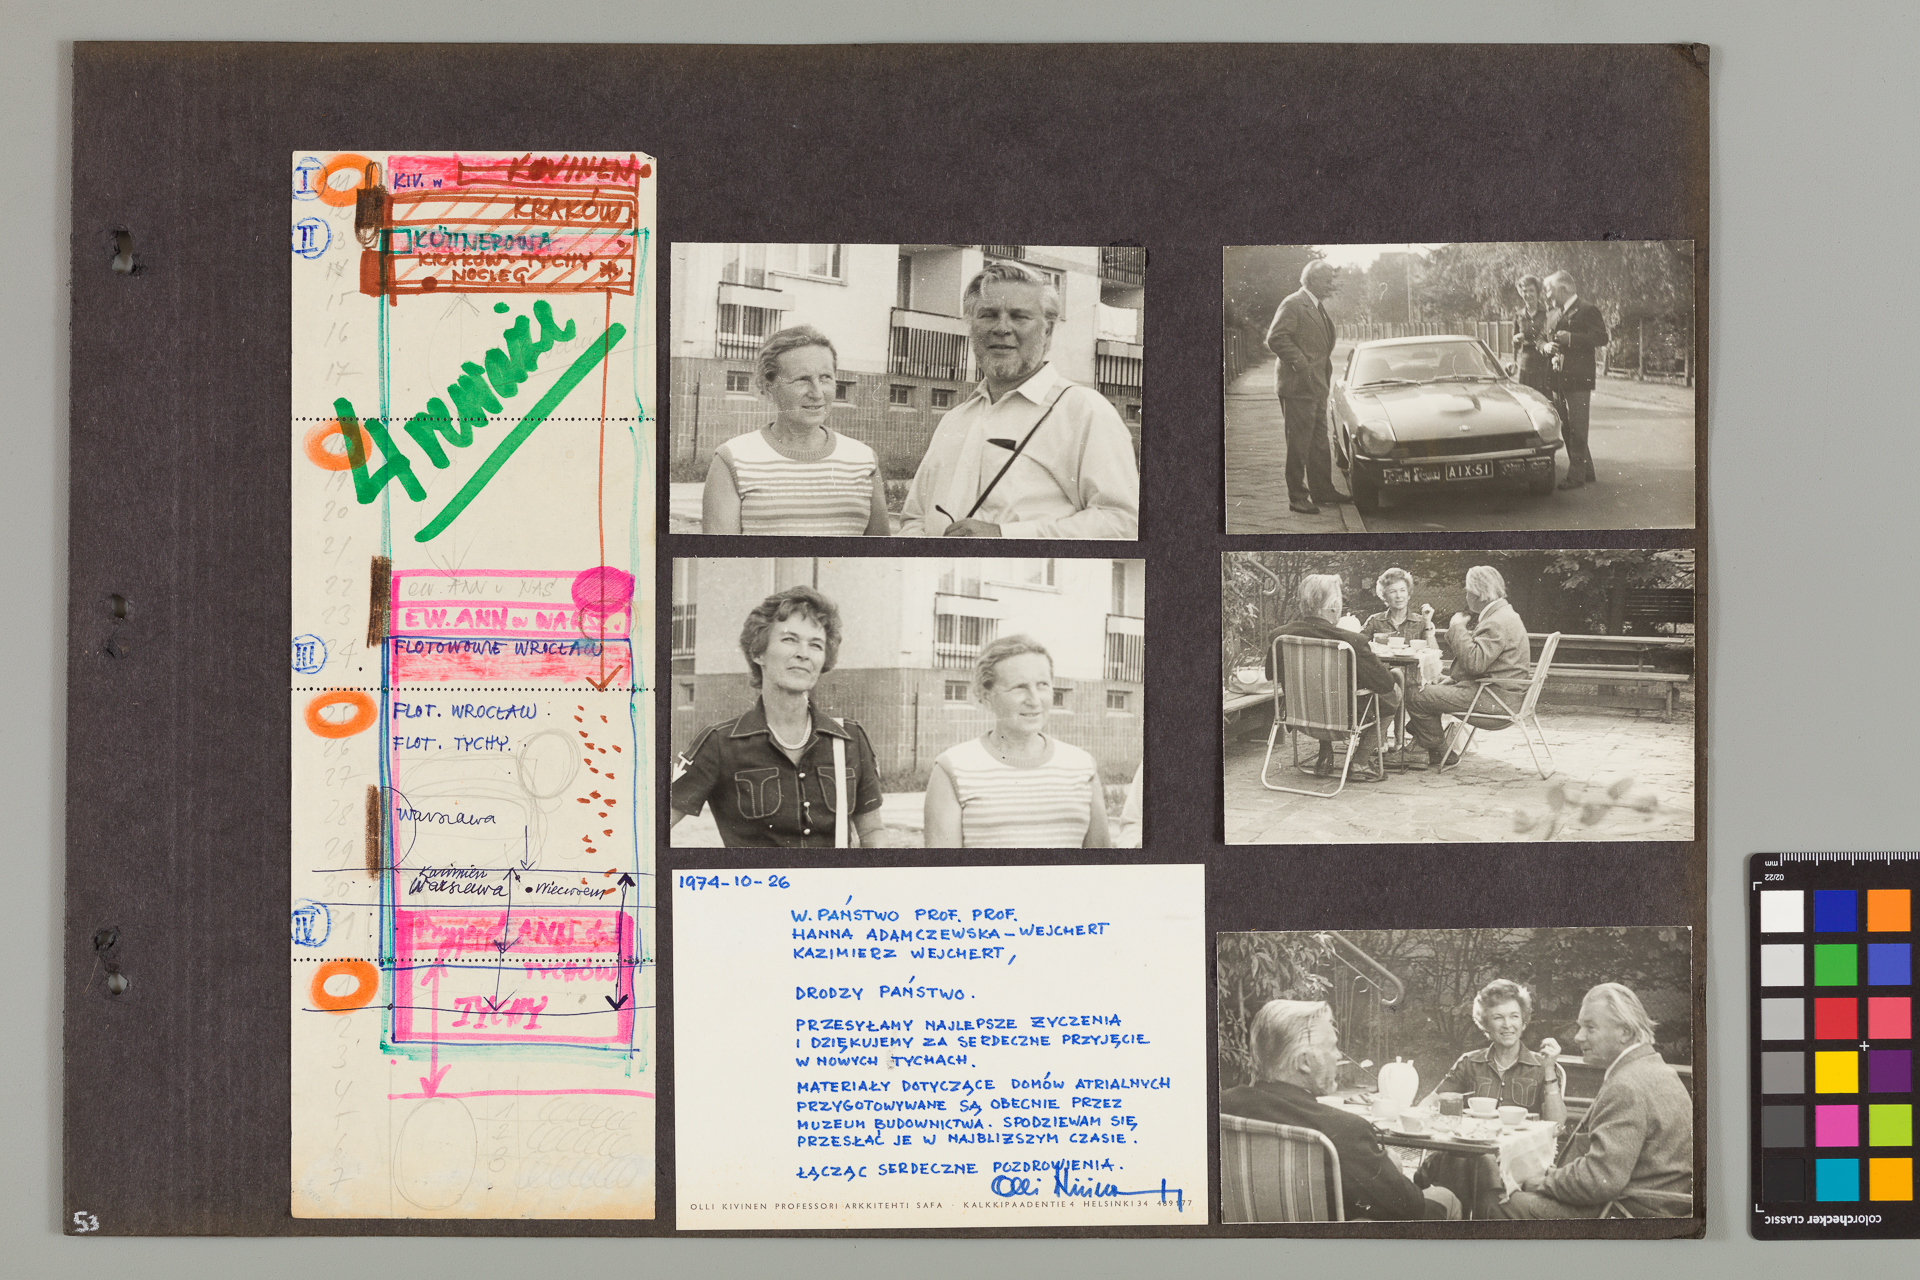 I
11
KIV. w
KOVINEN
12
KRAKÓW
II
13
KÜTTNEROWA
14
KRAKÓW-TYCHY
NOCLEG
15
16
17
4
19
20
21
22
EW. ANN U NAS
23
EW. ANN w WARSZ.
III
24
FLOTOWOWIE WROCŁAW
25
FLOT. WROCŁAW.
26
FLOT. TYCHY.
27
28
Warszawa
29
30
Kazimierz
Warszawa
Wieczorem
IV
31
ANN
TYCHÓW
TYCHY
2
3
4
5
6
7
1
2
3
AIX-51
1974-10-26
W. PAŃSTWO PROF. PROF.
HANNA ADAMCZEWSKA-WEJCHERT
KAZIMIERZ WEJCHERT,
DRODZY PAŃSTWO.
PRZESYŁAMY NAJLEPSZE ŻYCZENIA
I DZIĘKUJEMY ZA SERDECZNE PRZYJĘCIE
W NOWYCH TYCHACH.
MATERIAŁY DOTYCZĄCE DOMÓW ATRIALNYCH
PRZYGOTOWYWANE SĄ OBECNIE PRZEZ
MUZEUM BUDOWNICTWA. SPODZIEWAM SIĘ
PRZESŁAĆ JE W NAJBLIŻSZYM CZASIE.
ŁĄCZĄC SERDECZNE POZDROWIENIA.
Olli Kivinen
OLLI KIVINEN PROFESSORI ARKKITEHTI SAFA · KALKKIPAADENTIE 4 HELSINKI 34 489177
53
mm
02/22
colorchecker CLASSIC